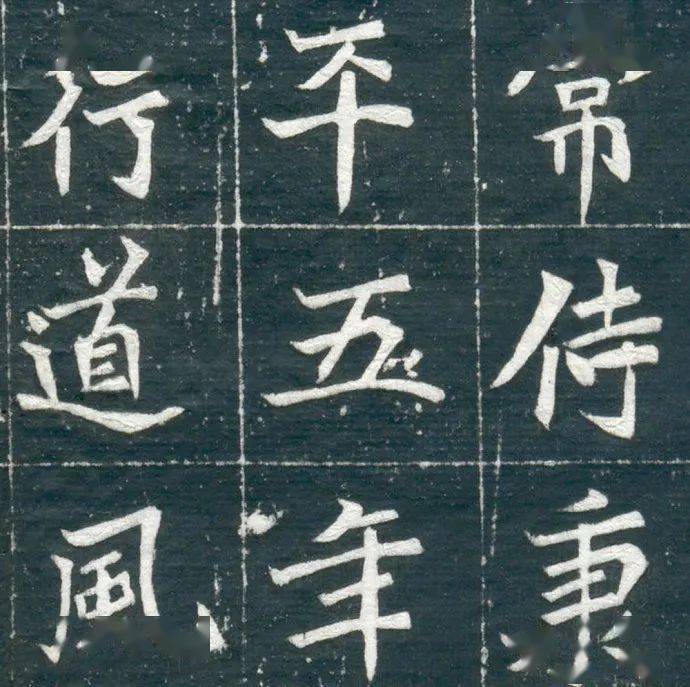 常侍秉
平五年
行道風